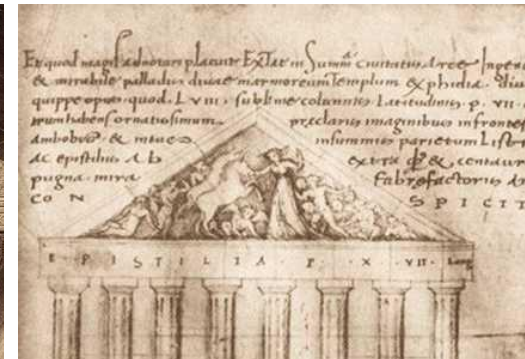 Et quod magis adnotare placuit Extat in Summa civitatis Arce Ingens
& mirabile palladis divae marmoreum Templum ex phidia
quippe opus quod LVIII sublime columnis Latitudinis p. VII
ornatissimum praeclaris imaginibus in fronte
ambobus & insummis parietum List
Ac epistiliis Ab extra & centaur
pugna mira Fabrefactoris Ar
CON SPICIT
EPISTILIA P X VII Long